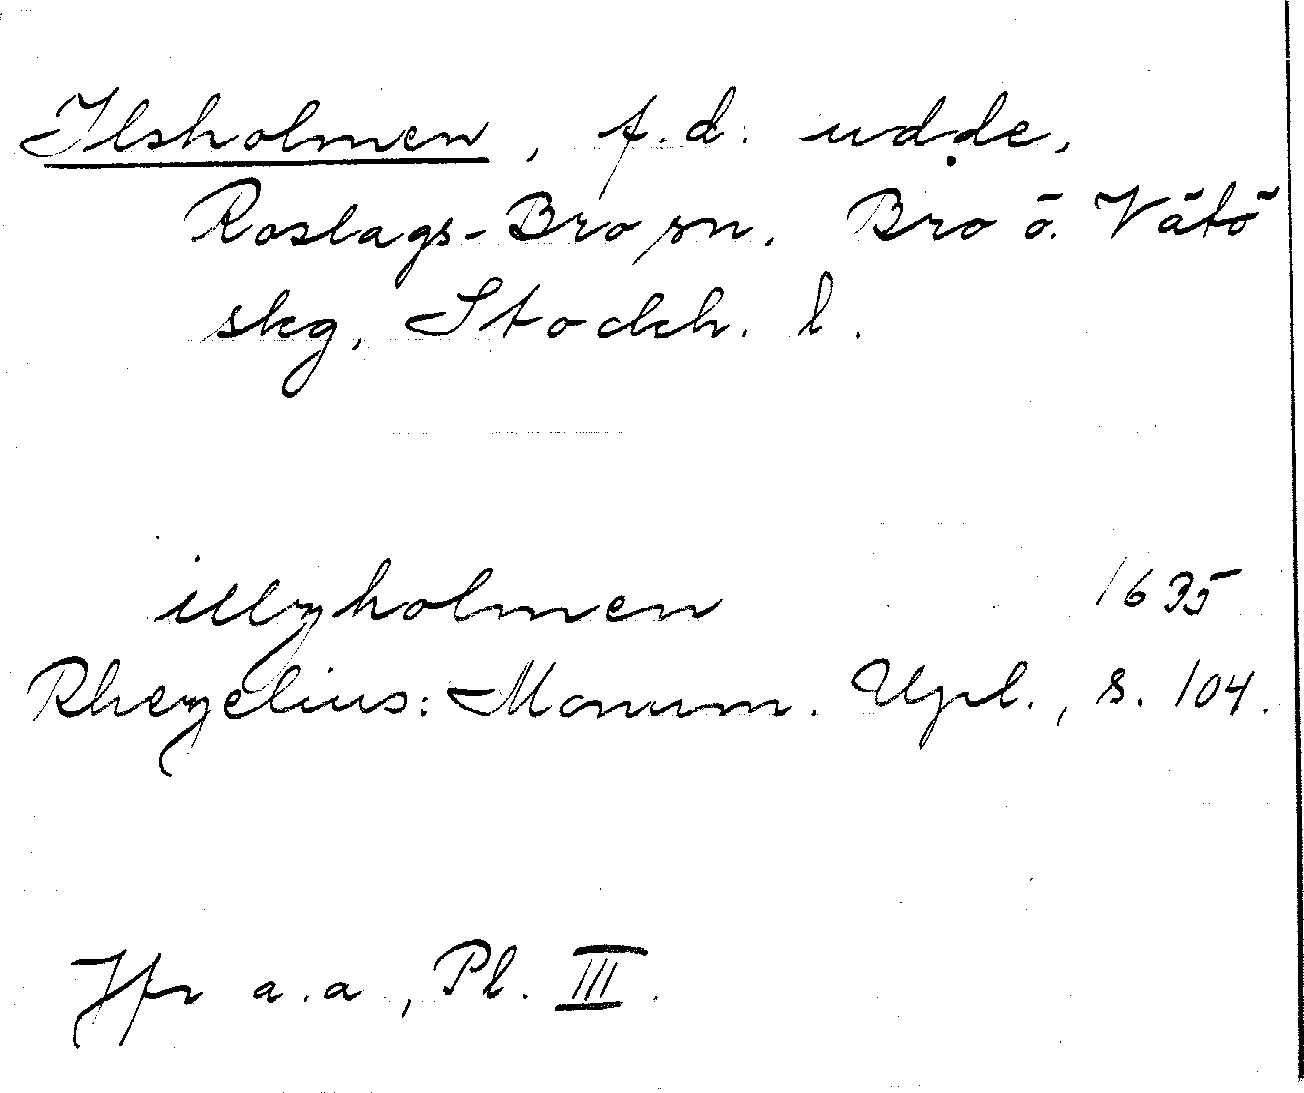 Ilsholmen, f.d. udde,
Roslags-Bro sn. Bro o. Vätö
skg, Stockh. l.
illzholmen 1635
Rhezelius: Monum. Upl., s. 104.
Jfr a.a, Pl. III.